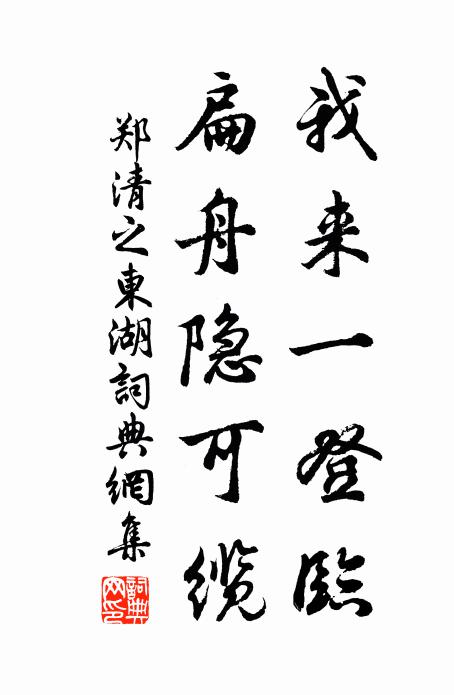 我来一登临
扁舟隐可缆
郑清之東湖詞典網集
詞典网印